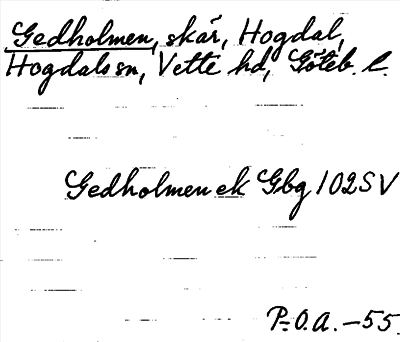 Gedholmen, skär, Hogdal,
Hogdals sn, Vette hd, Göteb. l.
Gedholmen ek Gbg 102 SV
P.O.A. -55.